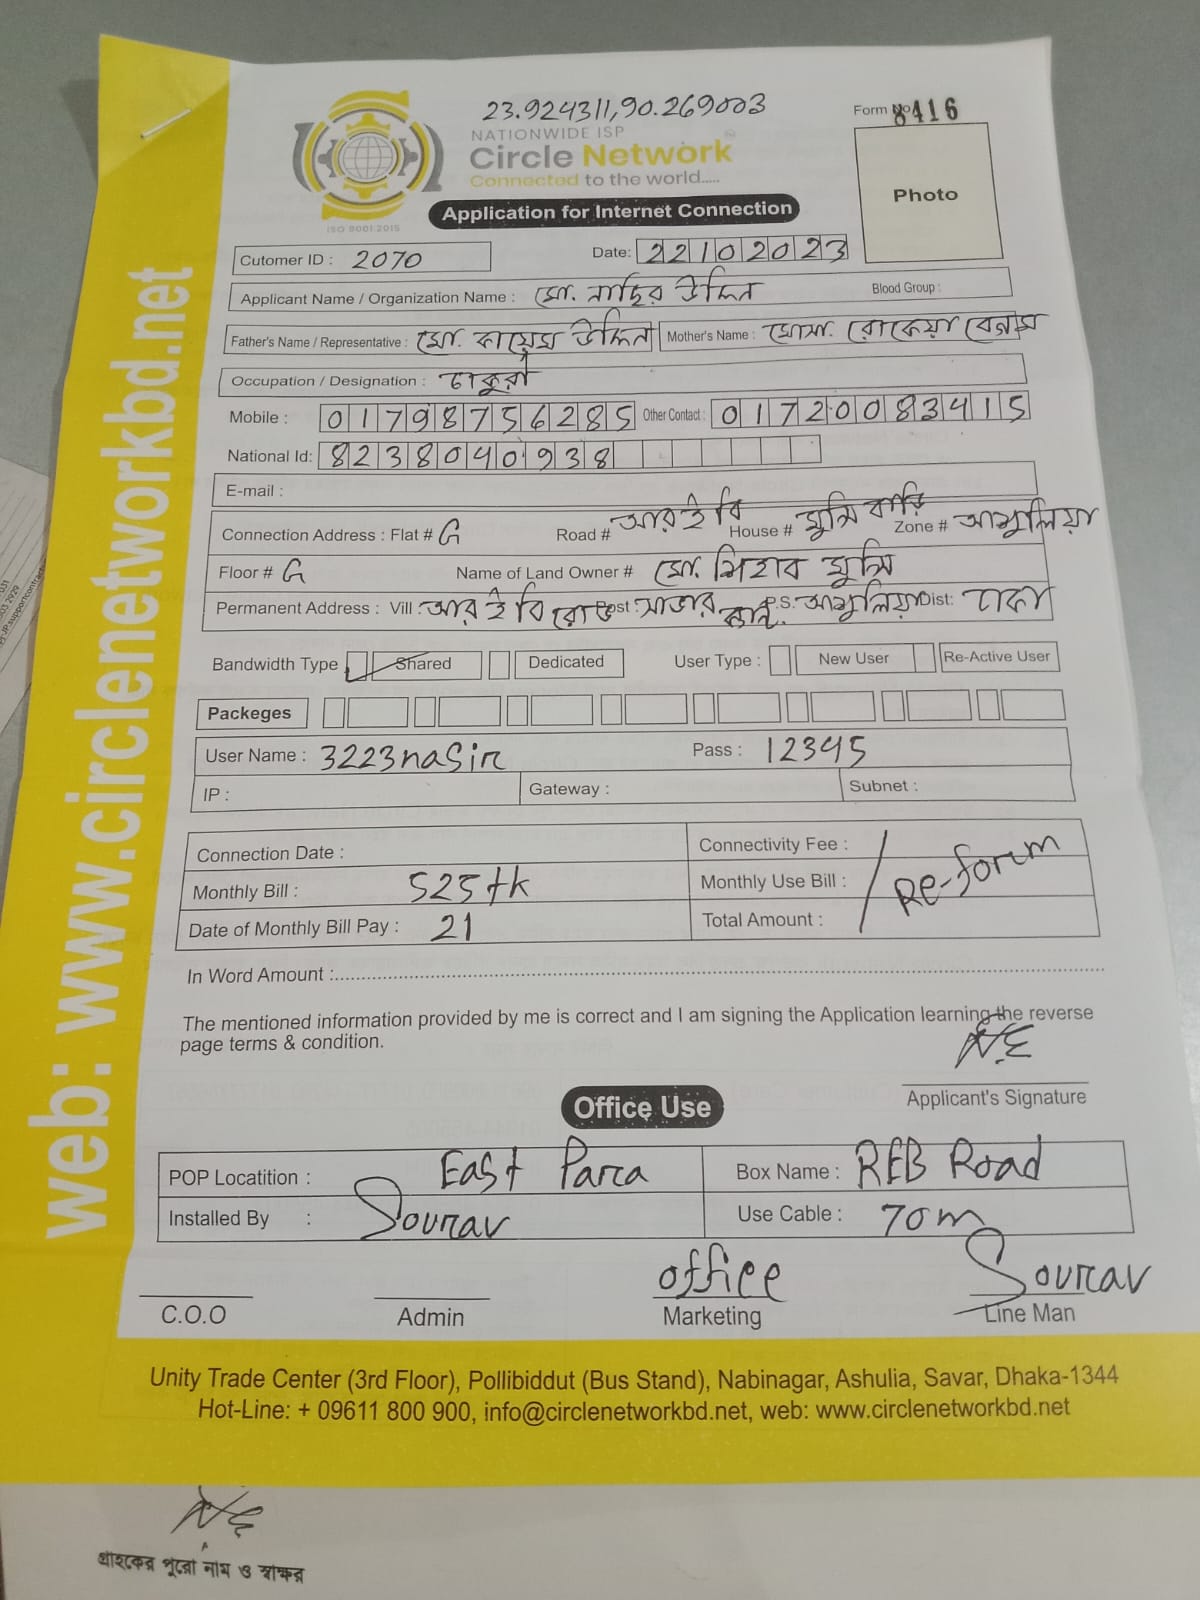 23.924311,90.269003
Form No 8416
NATIONWIDE ISP
Circle Network
Connected to the world.....
ISO 9001:2015
Photo
Application for Internet Connection
Cutomer ID : 2070 Date: 22102023
Applicant Name / Organization Name : মো. নাছির উদ্দিন Blood Group :
Father's Name / Representative : মো. কায়েম উদ্দিন Mother's Name : মোসা. রোকেয়া বেগম
Occupation / Designation : চাকুরী
Mobile : 01798756285 Other Contact : 01720083415
National Id: 8238040938
E-mail :
Connection Address : Flat # G Road # আর ই বি House # মুন্সি বাড়ি Zone # আশুলিয়া
Floor # G Name of Land Owner # মো. মুন্সি
Permanent Address : Vill : আর ই বি রোড Post : সাভার ক্যান্ট. P.S. আশুলিয়া Dist: ঢাকা
Bandwidth Type Shared Dedicated User Type : New User Re-Active User
Packeges
User Name : 3223nasir Pass : 12345
IP : Gateway : Subnet :
Connection Date : Connectivity Fee :
Monthly Bill : 525tk Monthly Use Bill : Re-forum
Date of Monthly Bill Pay : 21 Total Amount :
In Word Amount :
The mentioned information provided by me is correct and I am signing the Application learning the reverse
page terms & condition.
Applicant's Signature
Office Use
POP Locatition : East Para Box Name : REB Road
Installed By : Sourav Use Cable : 70m
office Sourav
C.O.O Admin Marketing Line Man
Unity Trade Center (3rd Floor), Pollibiddut (Bus Stand), Nabinagar, Ashulia, Savar, Dhaka-1344
Hot-Line: + 09611 800 900, info@circlenetworkbd.net, web: www.circlenetworkbd.net
web: www.circlenetworkbd.net
গ্রাহকের পুরো নাম ও স্বাক্ষর